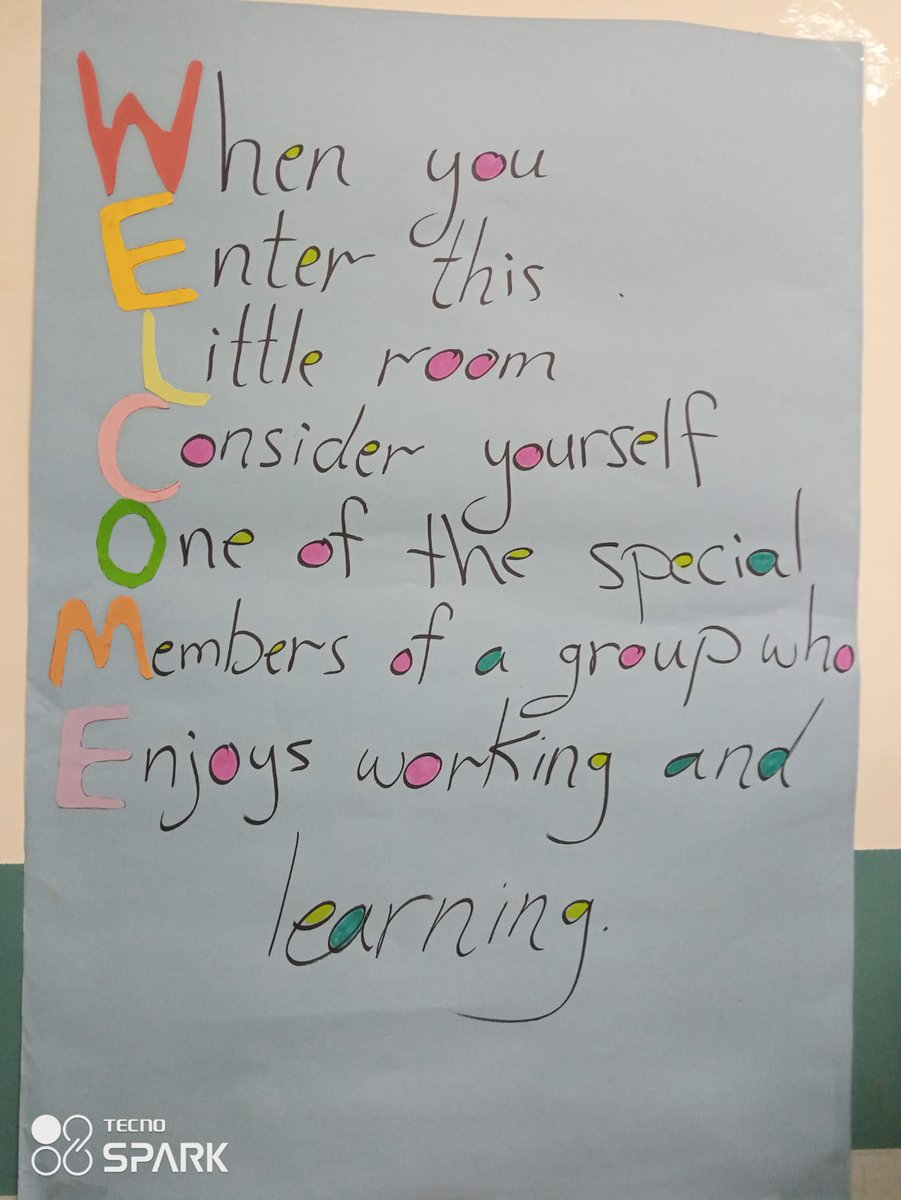 When you
Enter this
Little room
Consider yourself
One of the special
Members of a group who
Enjoys working and
learning.
TECNO
SPARK